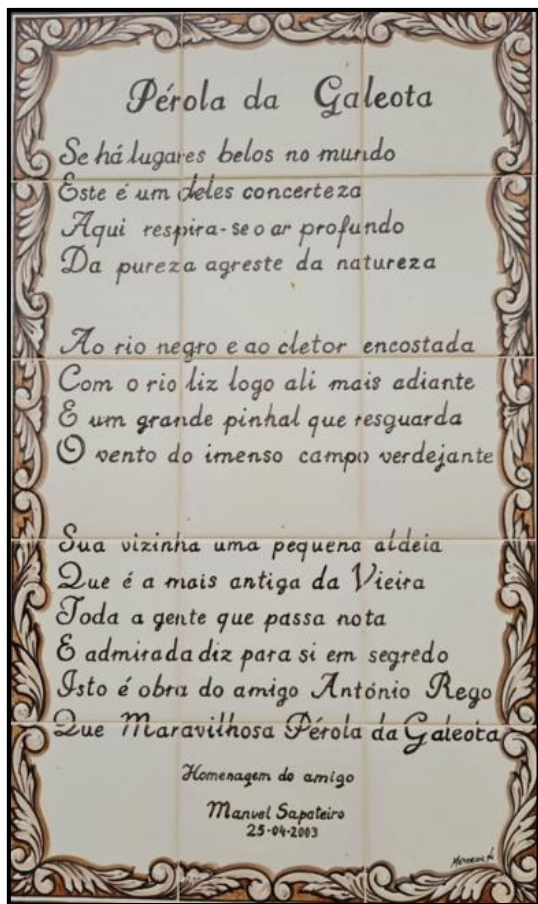 Pérola da Galeota
Se há lugares belos no mundo
Este é um deles concerteza
Aqui respira-se o ar profundo
Da pureza agreste da natureza
Ao rio negro e ao cletor encostada
Com o rio liz logo ali mais adiante
E um grande pinhal que resguarda
O vento do imenso campo verdejante
Sua vizinha uma pequena aldeia
Que é a mais antiga da Vieira
Toda a gente que passa nota
E admirada diz para si em segredo
Isto é obra do amigo António Rego
Que Maravilhosa Pérola da Galeota
Homenagem do amigo
Manuel Sapateiro
25-04-2003